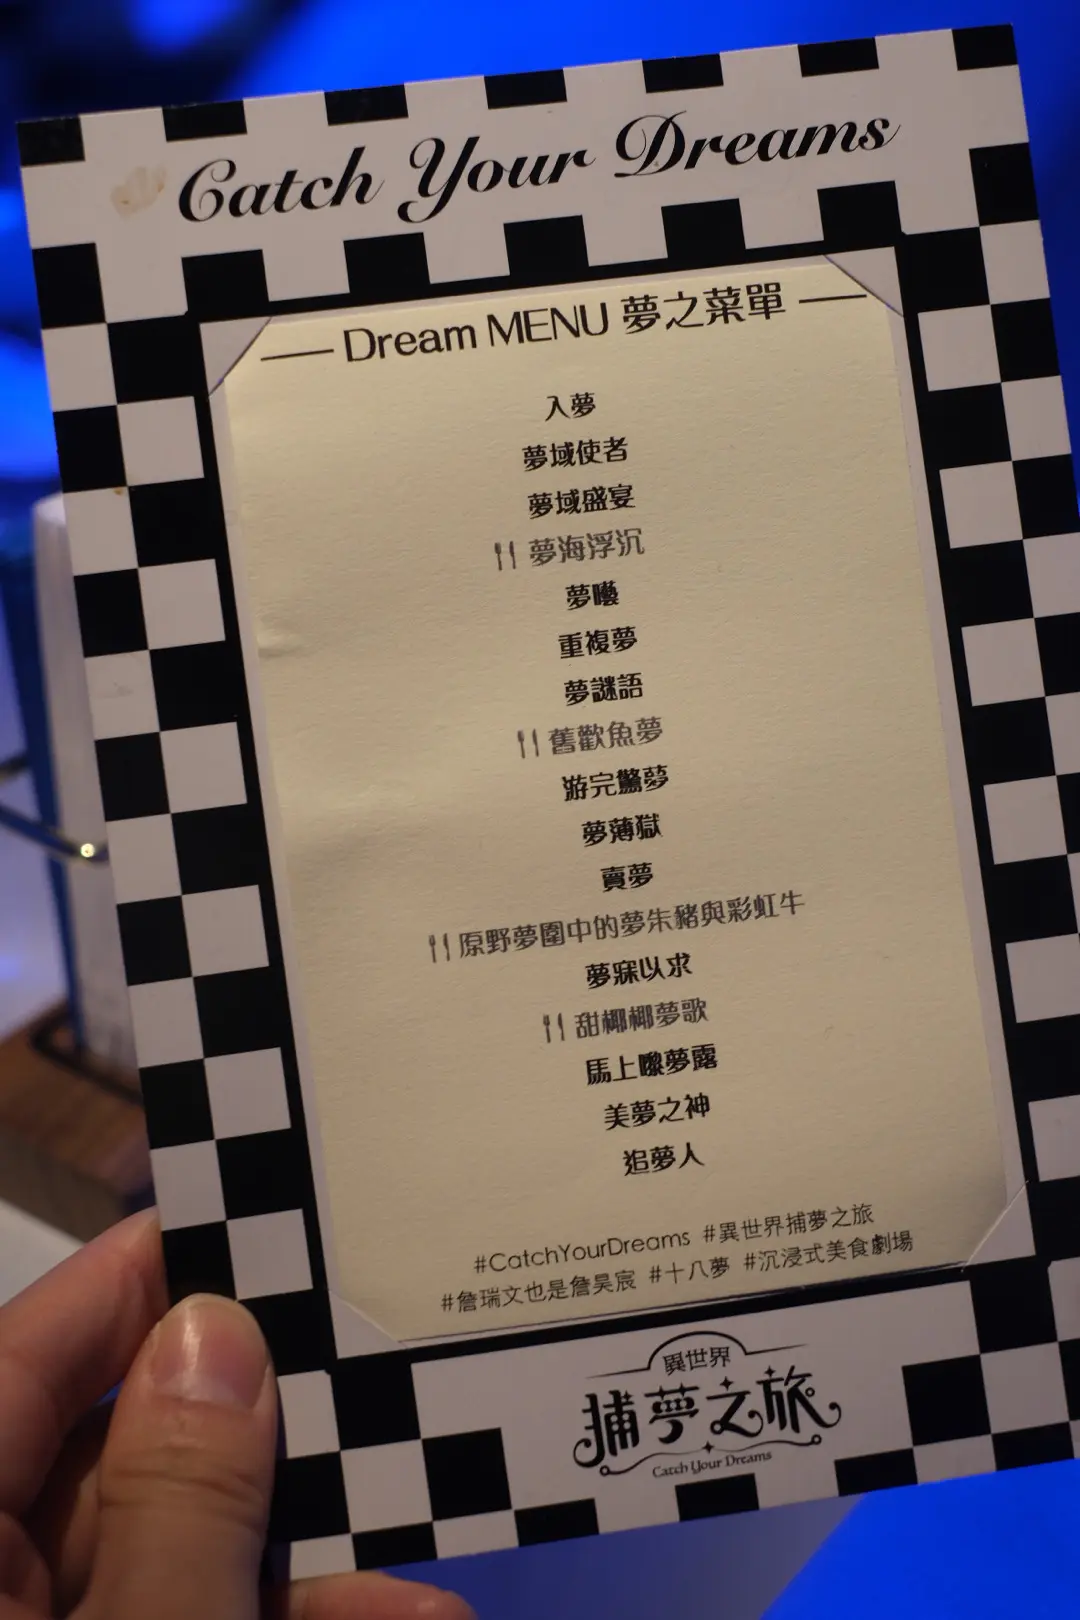 Catch Your Dreams
Dream MENU 夢之菜單
入夢
夢域使者
夢域盛宴
夢海浮沉
夢囈
重複夢
夢謎語
舊歡魚夢
游完驚夢
夢薄獄
賣夢
原野夢圍中的夢朱豬與彩虹牛
夢寐以求
甜椰椰夢歌
馬上嚟夢露
美夢之神
追夢人
#CatchYourDreams #異世界捕夢之旅
#詹瑞文也是詹昊宸 #十八夢 #沉浸式美食劇場
異世界
捕夢之旅
Catch Your Dreams